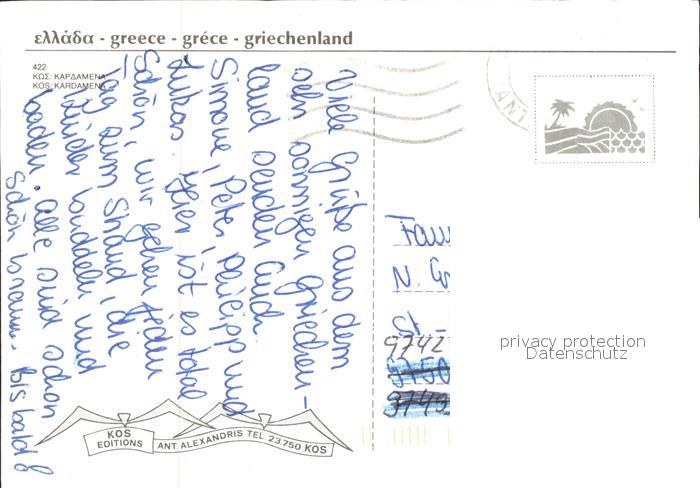 ελλάδα - greece - gréce - griechenland
422
ΚΩΣ: ΚΑΡΔΑΜΕΝΑ
KOS: KARDAMENA
Viele Grüße aus dem
sehr sonnigen Griechen-
land senden Euch
Simone, Peter, Philipp und
Lukas. Hier ist es total
Schön, wir gehen jeden
Tag zum Strand, die
Kinder buddeln und
baden. Alle sind schon
Schön braun. Bis bald
ANT
Fam
N. G
St -
9742
9750
9749
privacy protection
Datenschutz
KOS
EDITIONS
ANT. ALEXANDRIS TEL 23.750 KOS